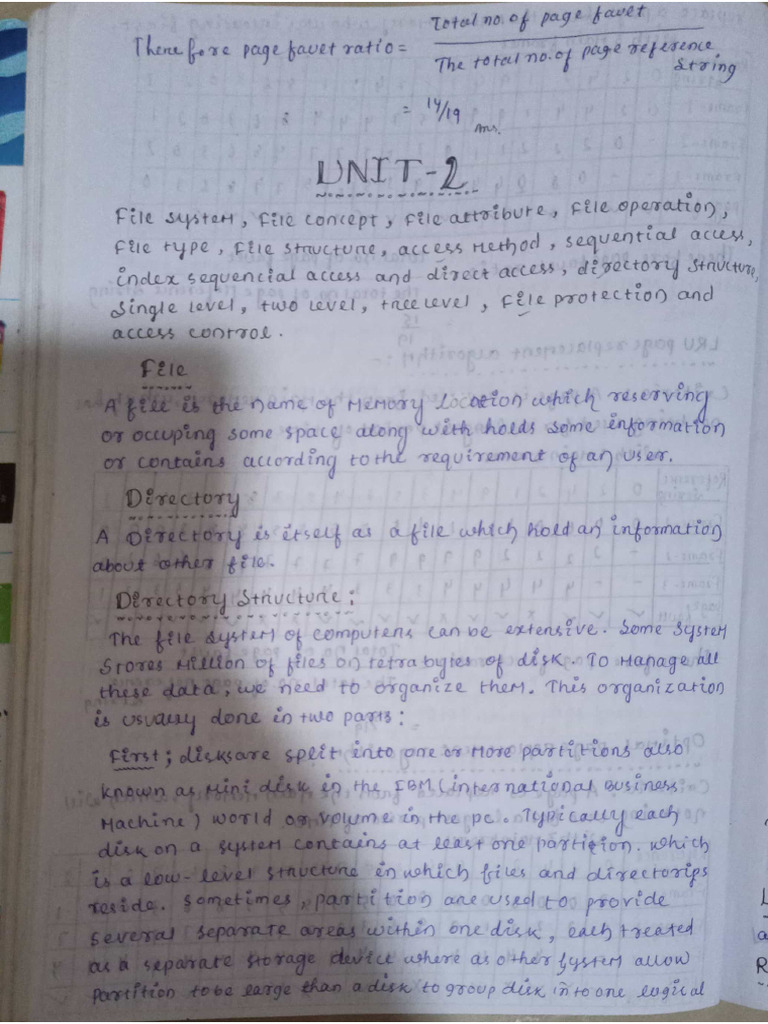 Therefore page favet ratio = Total no. of page favet
The total no. of page reference
string
= 14/19 Ans.
UNIT-2
File system, File concept, File attribute, File operation,
File type, File structure, access method, sequential access,
index sequencial access and direct access, directory structure,
Single level, two level, treelevel, File protection and
access control.
File
A file is the name of memory location which reserving
or occuping some space along with holds some information
or contains according to the requirement of an user.
Directory:
A Directory is itself as a file which hold an information
about other file.
Directory Structure:
The file system of computers can be extensive. Some system
stores million of files on tetrabytes of disk. To manage all
these data, we need to organize them. This organization
is usually done in two parts:
First; disksare split into one or more partitions also
known as mini disk in the IBM (international Business
Machine) world or volume in the pc. Typically each
disk on a system contains at least one partition. which
is a low-level structure in which files and directories
reside. Sometimes, partition are used to provide
several separate areas within one disk, each treated
as a separate storage device where as other system allow
partition tobe large than a disk to group disk into one logical